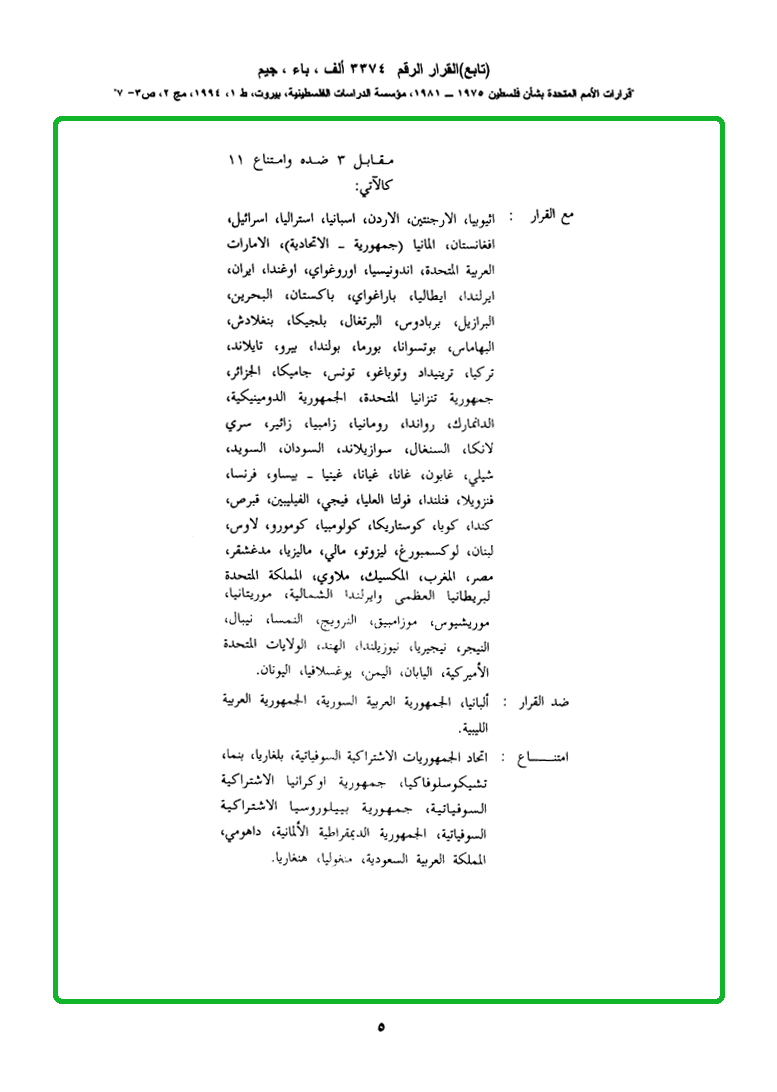 (تابع)القرار الرقم ٣٣٧٤ ألف ، باء ، جيم
"قرارات الأمم المتحدة بشأن فلسطين ١٩٧٥ ــ ١٩٨١، مؤسسة الدراسات الفلسطينية، بيروت، ط ١، ١٩٩٤، مج ٢، ص٣- ٧"
مقابل ٣ ضده وامتناع ١١
كالآتي:
مع القرار : اثيوبيا، الارجنتين، الاردن، اسبانيا، استراليا، اسرائيل،
افغانستان، المانيا (جمهورية ــ الاتحادية)، الامارات
العربية المتحدة، اندونيسيا، اوروغواي، اوغندا، ايران،
ايرلندا، ايطاليا، باراغواي، باكستان، البحرين،
البرازيل، بربادوس، البرتغال، بلجيكا، بنغلادش،
البهاماس، بوتسوانا، بورما، بولندا، بيرو، تايلاند،
تركيا، ترينيداد وتوباغو، تونس، جاميكا، الجزائر،
جمهورية تنزانيا المتحدة، الجمهورية الدومينيكية،
الدانمارك، رواندا، رومانيا، زامبيا، زائير، سري
لانكا، السنغال، سوازيلاند، السودان، السويد،
شيلي، غابون، غانا، غيانا، غينيا ــ بيساو، فرنسا،
فنزويلا، فنلندا، فولتا العليا، فيجي، الفيليبين، قبرص،
كندا، كوبا، كوستاريكا، كولومبيا، كومورو، لاوس،
لبنان، لوكسمبورغ، ليزوتو، مالي، ماليزيا، مدغشقر،
مصر، المغرب، المكسيك، ملاوي، المملكة المتحدة
لبريطانيا العظمى وايرلندا الشمالية، موريتانيا،
موريشيوس، موزامبيق، النرويج، النمسا، نيبال،
النيجر، نيجيريا، نيوزيلندا، الهند، الولايات المتحدة
الأميركية، اليابان، اليمن، يوغسلافيا، اليونان.
ضد القرار : ألبانيا، الجمهورية العربية السورية، الجمهورية العربية
الليبية.
امتنـــــاع : اتحاد الجمهوريات الاشتراكية السوفياتية، بلغاريا، بنما،
تشيكوسلوفاكيا، جمهورية اوكرانيا الاشتراكية
السوفياتية، جمهورية بييلوروسيا الاشتراكية
السوفياتية، الجمهورية الديمقراطية الألمانية، داهومي،
المملكة العربية السعودية، منغوليا، هنغاريا.
٥